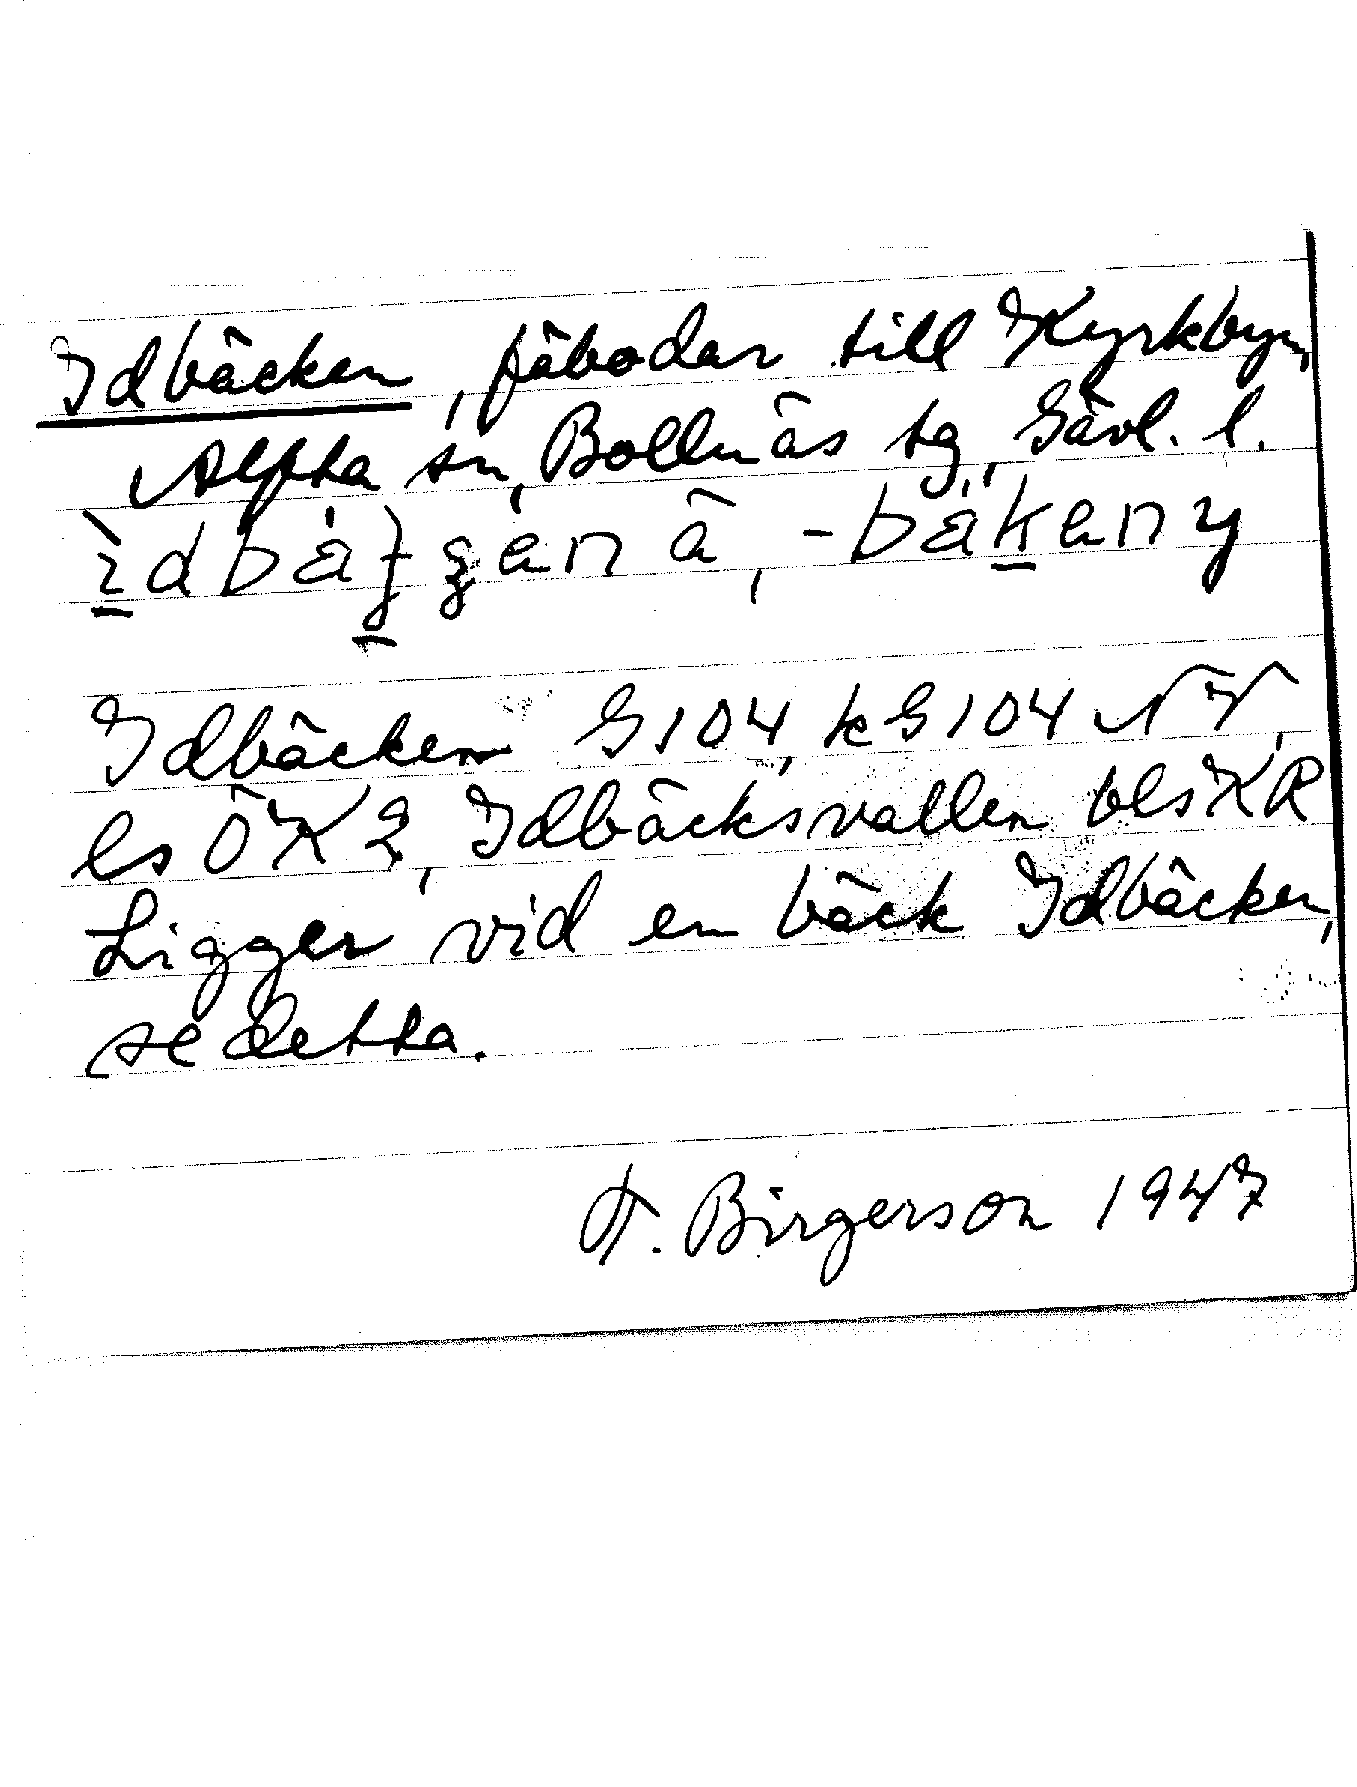 Idbäcken, fäbodar till Kyrkbyn,
Alfta sn, Bollnäs tg, Gävl. l.
Idbäcken G104, k G104 NV,
ls ÖK 2, Idbäcksvallen bls KR
Ligger vid en bäck Idbäcken,
se detta.
F. Birgerson 1947